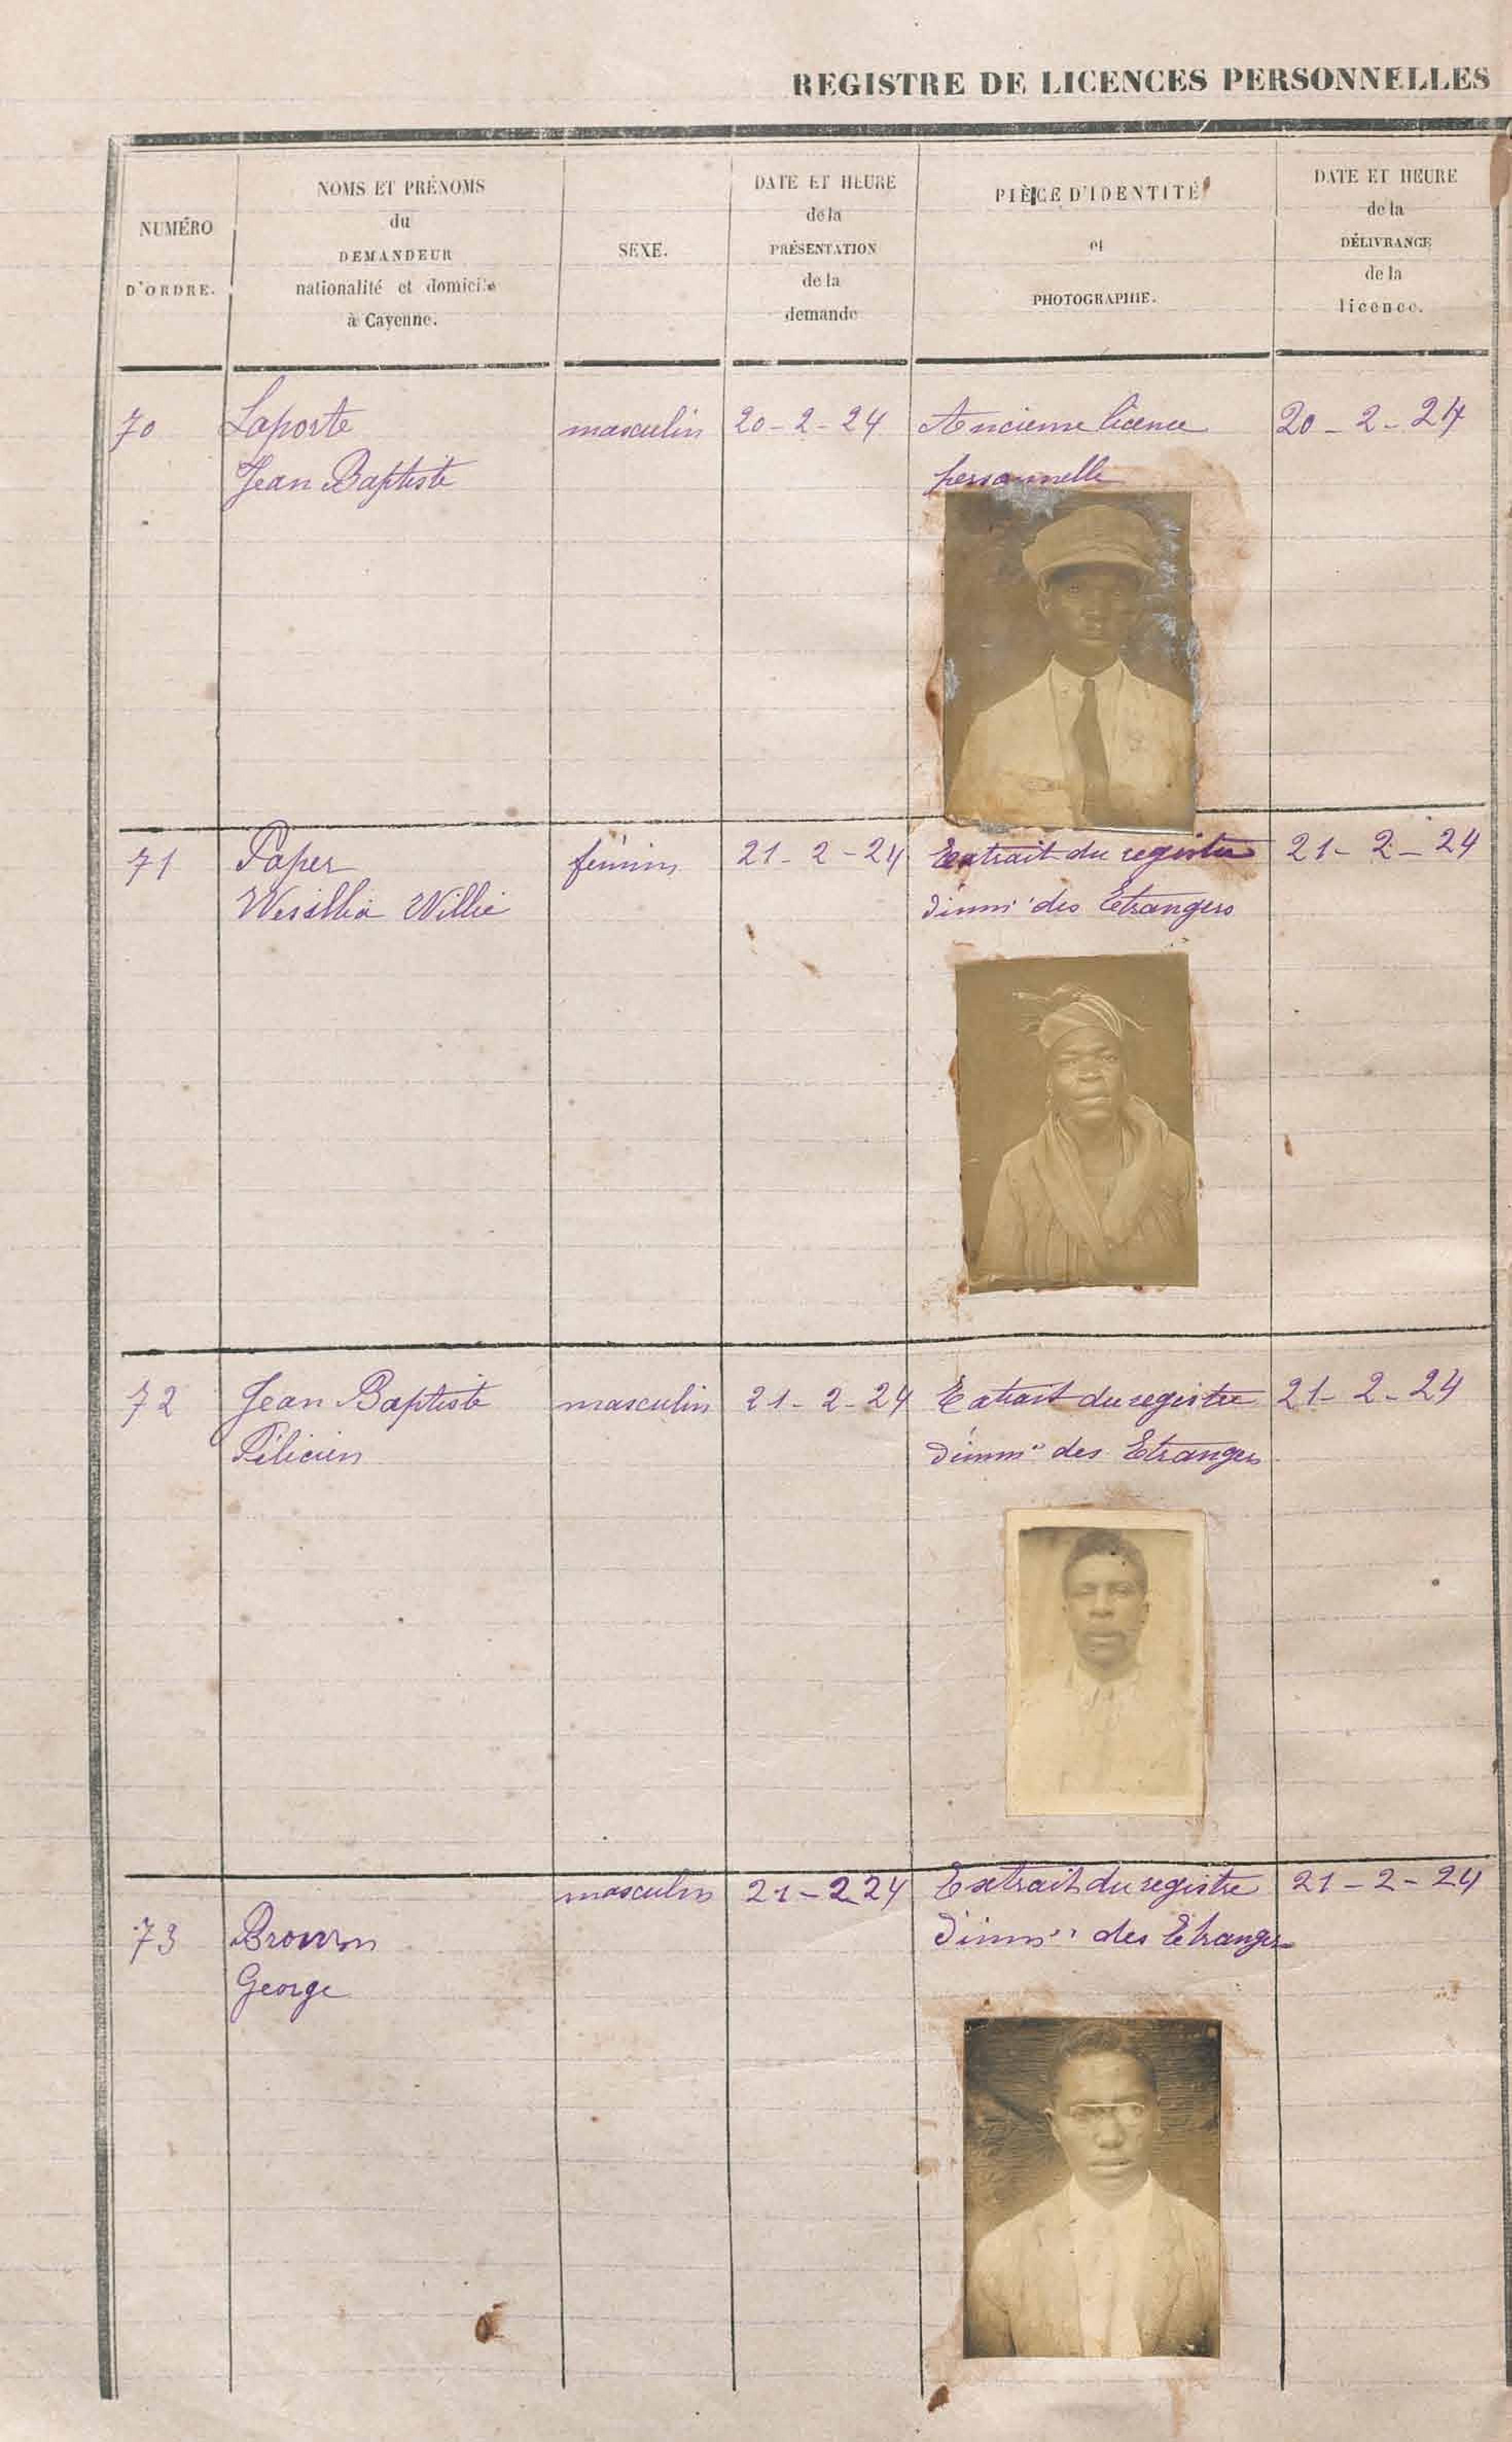 REGISTRE DE LICENCES PERSONNELLES
NUMÉRO
D'ORDRE.
NOMS ET PRÉNOMS
du
DEMANDEUR
nationalité et domicile
à Cayenne.
SEXE.
DATE ET HEURE
de la
PRÉSENTATION
de la
demande
PIÈCE D'IDENTITÉ
et
PHOTOGRAPHIE.
DATE ET HEURE
de la
DÉLIVRANCE
de la
licence.
70
Laporte
Jean Baptiste
masculin
20-2-24
Ancienne licence
personnelle
20-2-24
71
Paper
Willie
féminin
21-2-24
Extrait du registre
d'imm. des Etrangers
21-2-24
72
Jean Baptiste
Félicien
masculin
21-2-24
Extrait du registre
d'imm. des Etrangers
21-2-24
73
Brown
George
masculin
21-2 24
Extrait du registre
d'imm. des Etrangers
21-2-24